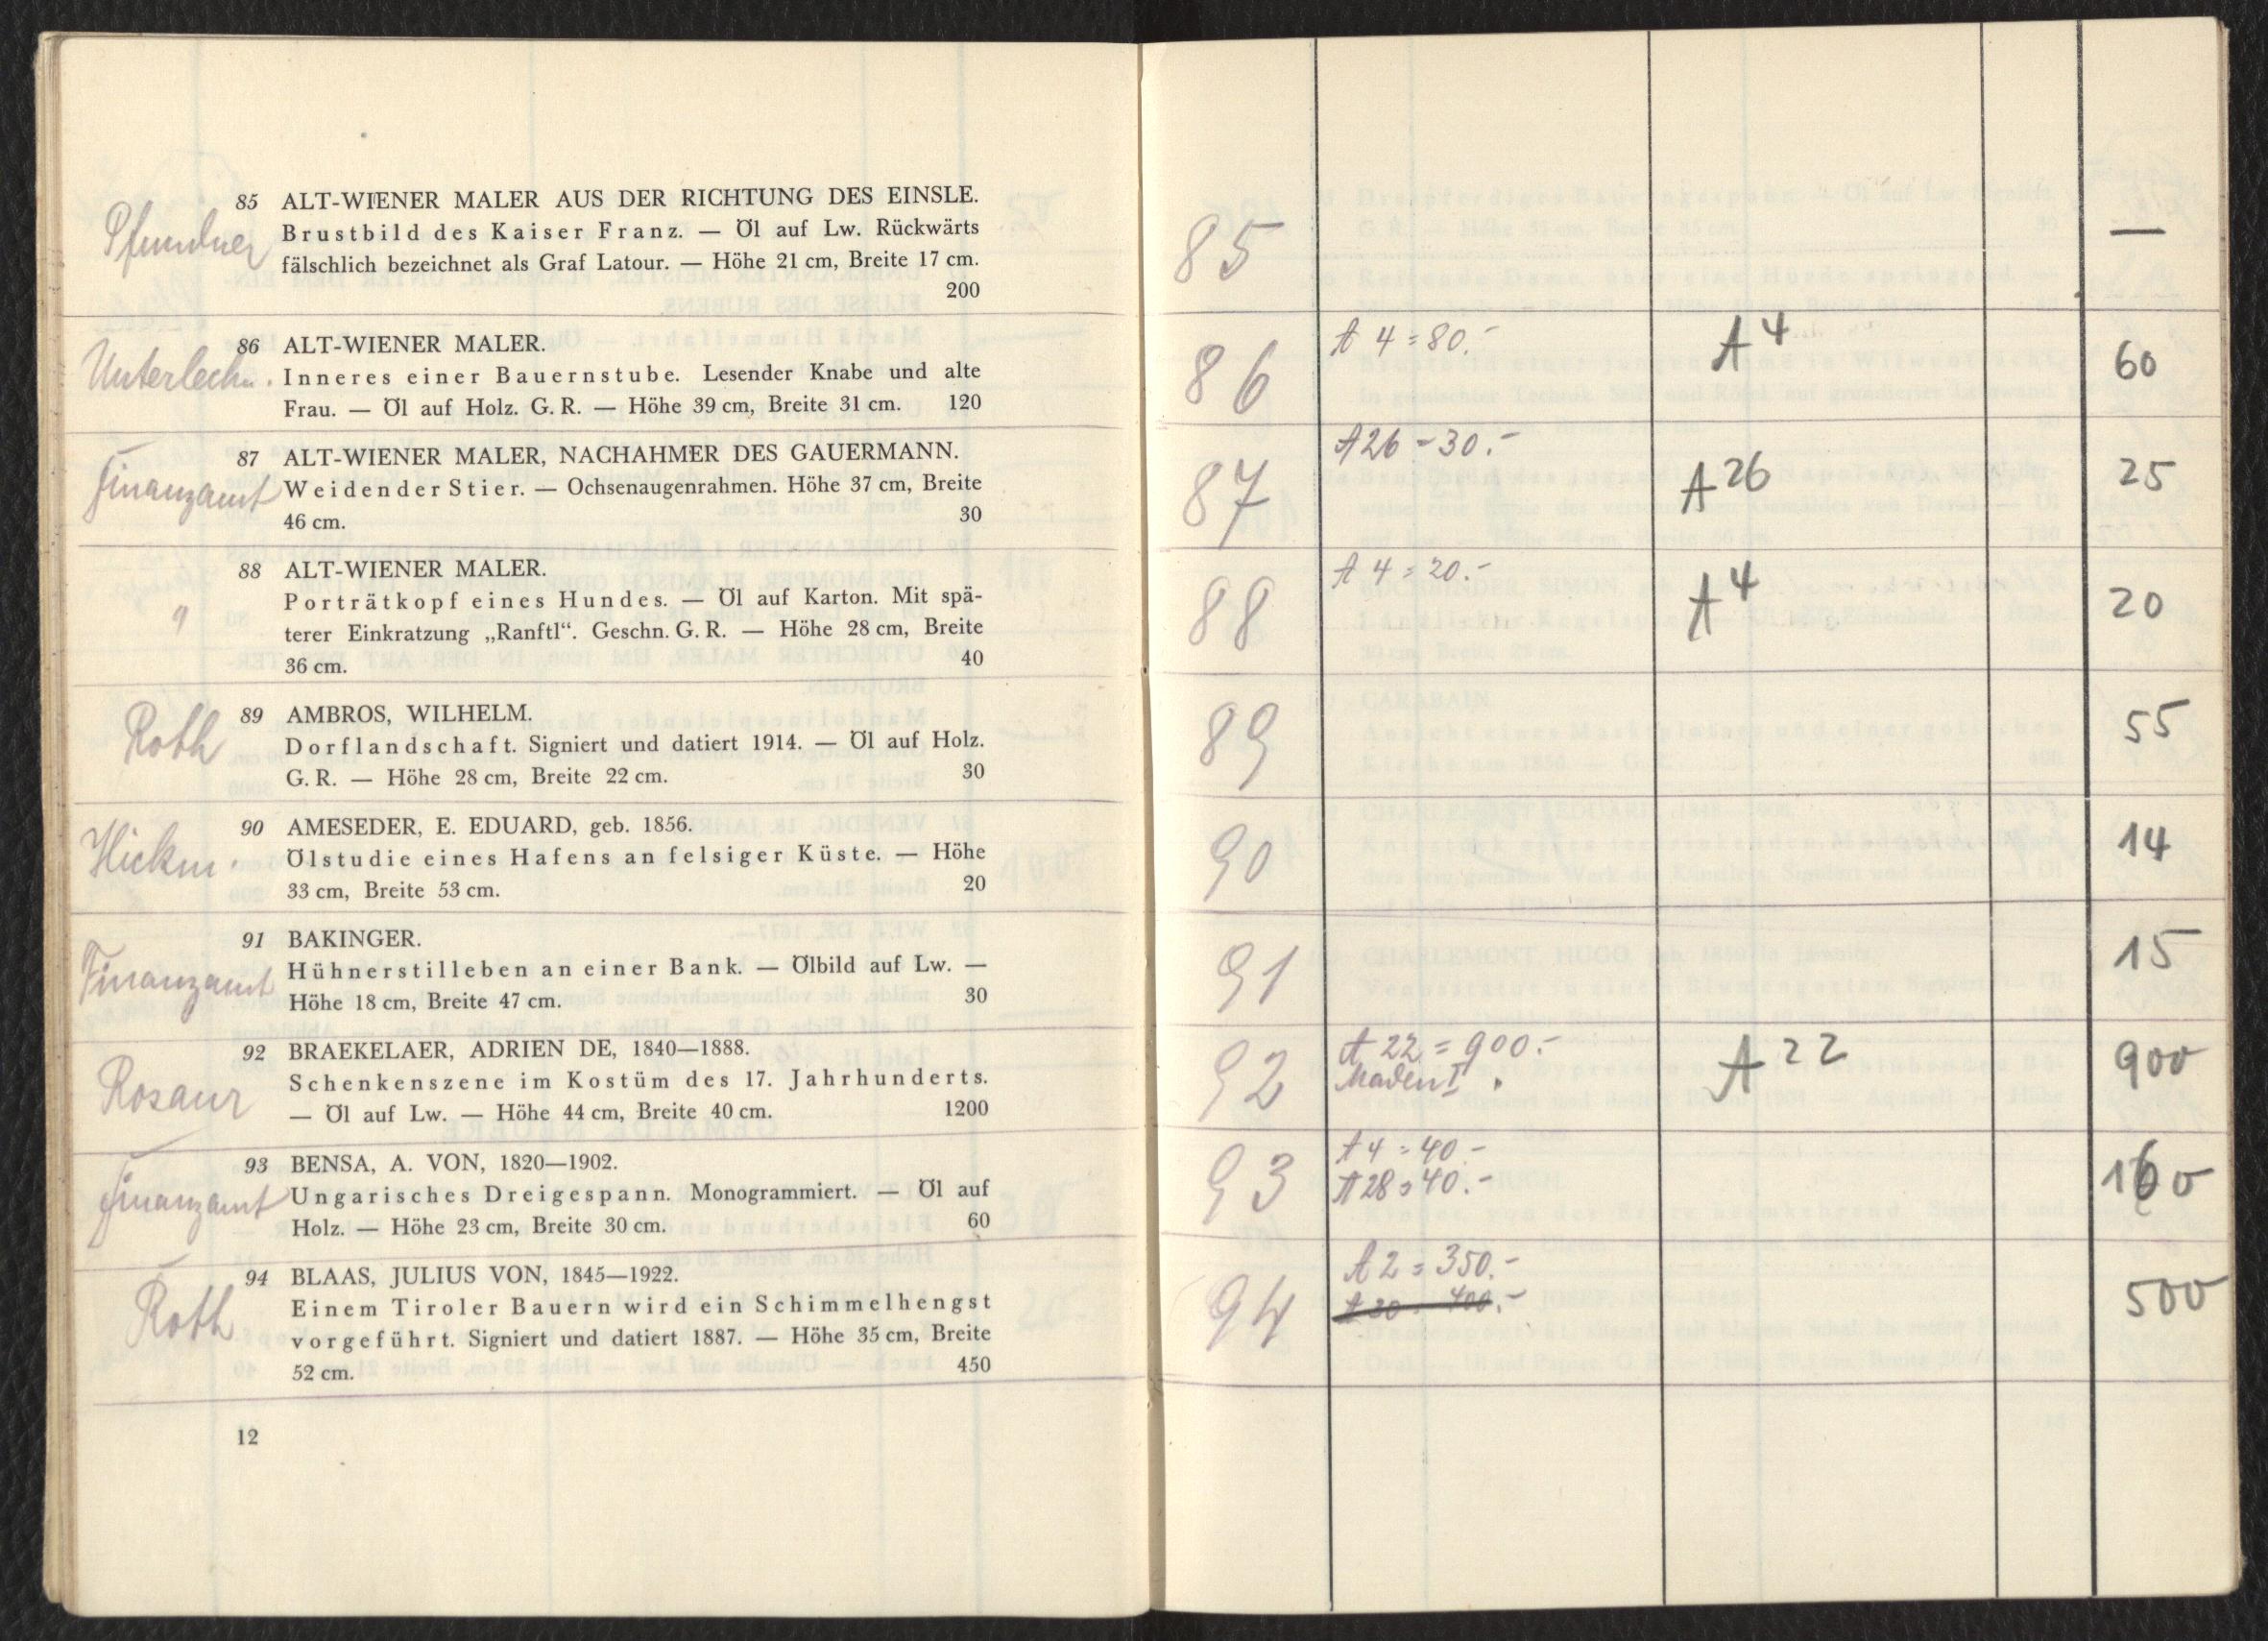 Pfundner
85 ALT-WIENER MALER AUS DER RICHTUNG DES EINSLE.
Brustbild des Kaiser Franz. — Öl auf Lw. Rückwärts
fälschlich bezeichnet als Graf Latour. — Höhe 21 cm, Breite 17 cm.
200
Unterlechn.
86 ALT-WIENER MALER.
Inneres einer Bauernstube. Lesender Knabe und alte
Frau. — Öl auf Holz. G. R. — Höhe 39 cm, Breite 31 cm. 120
Finanzamt
87 ALT-WIENER MALER, NACHAHMER DES GAUERMANN.
Weidender Stier. — Ochsenaugenrahmen. Höhe 37 cm, Breite
46 cm. 30
88 ALT-WIENER MALER.
Porträtkopf eines Hundes. — Öl auf Karton. Mit spä-
terer Einkratzung „Ranftl“. Geschn. G. R. — Höhe 28 cm, Breite
36 cm. 40
Roth
89 AMBROS, WILHELM.
Dorflandschaft. Signiert und datiert 1914. — Öl auf Holz.
G. R. — Höhe 28 cm, Breite 22 cm. 30
Hickm.
90 AMESEDER, E. EDUARD, geb. 1856.
Ölstudie eines Hafens an felsiger Küste. — Höhe
33 cm, Breite 53 cm. 20
Finanzamt
91 BAKINGER.
Hühnerstilleben an einer Bank. — Ölbild auf Lw. —
Höhe 18 cm, Breite 47 cm. 30
Rosaur
92 BRAEKELAER, ADRIEN DE, 1840—1888.
Schenkenszene im Kostüm des 17. Jahrhunderts.
— Öl auf Lw. — Höhe 44 cm, Breite 40 cm. 1200
Finanzamt
93 BENSA, A. VON, 1820—1902.
Ungarisches Dreigespann. Monogrammiert. — Öl auf
Holz. — Höhe 23 cm, Breite 30 cm. 60
Roth
94 BLAAS, JULIUS VON, 1845—1922.
Einem Tiroler Bauern wird ein Schimmelhengst
vorgeführt. Signiert und datiert 1887. — Höhe 35 cm, Breite
52 cm. 450
12
85 —
86 A 4 = 80.- A 4 60
87 A 26 - 30.- A 26 25
88 A 4 = 20.- A 4 20
89 55
90 14
91 15
92 A 22 = 900.- A 22 900
93 A 4 = 40.- 160
A 28 = 40.-
94 A 2 = 350.- 500
A 30 = 400.-